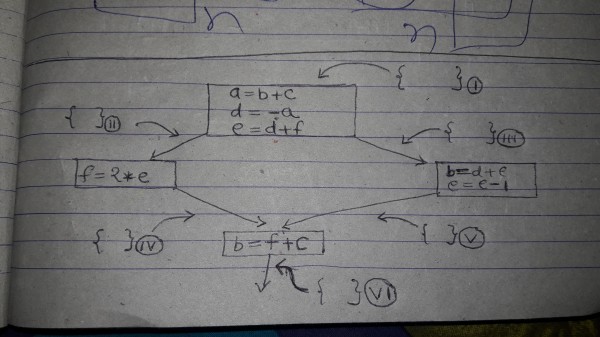 n n
{ } I
a=b+c
d=-a
e=d+f
{ } II
{ } III
f=2*e
b=d+e
e=e-1
{ } IV
b=f+c
{ } V
{ } VI